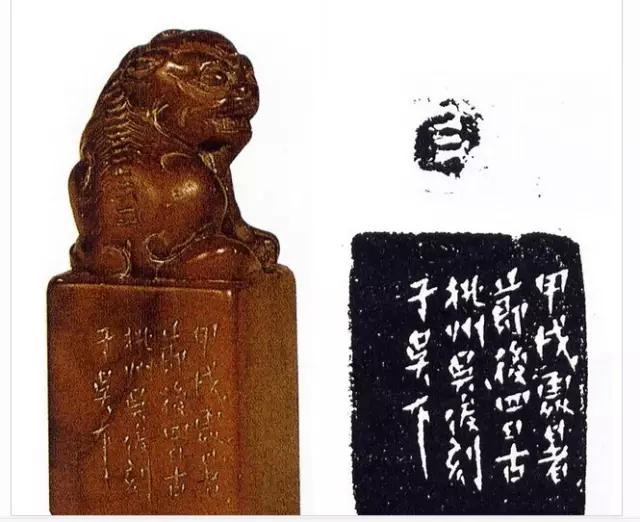 甲戌處暑
節後四日古
桃州吳俊刻
于吳下
甲戌處暑
節後四日古
桃州吳俊刻
于吳下